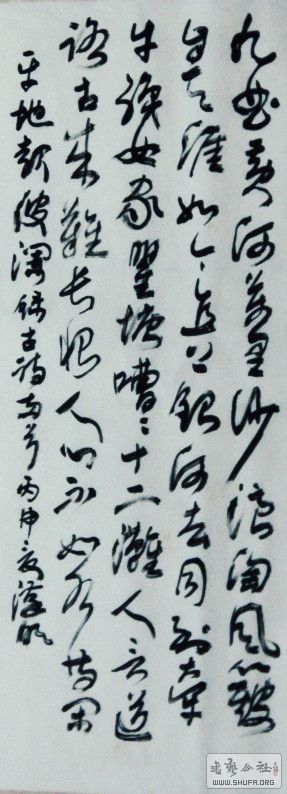 九曲黄河萬里沙浪淘風簸
自天涯如今直上銀河去同到牵
牛織女家瞿塘嘈嘈十二灘人言道
路古来難長恨人心不如水等闲
平地起波澜録古詩两首丙申
书艺公社
WWW.SHUFA.ORG